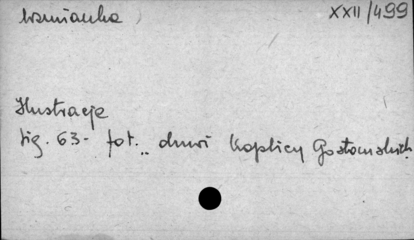 wzmianka
XXII/499
Ilustracje
fig. 63 - fot. drzwi Kaplicy Gostomskich